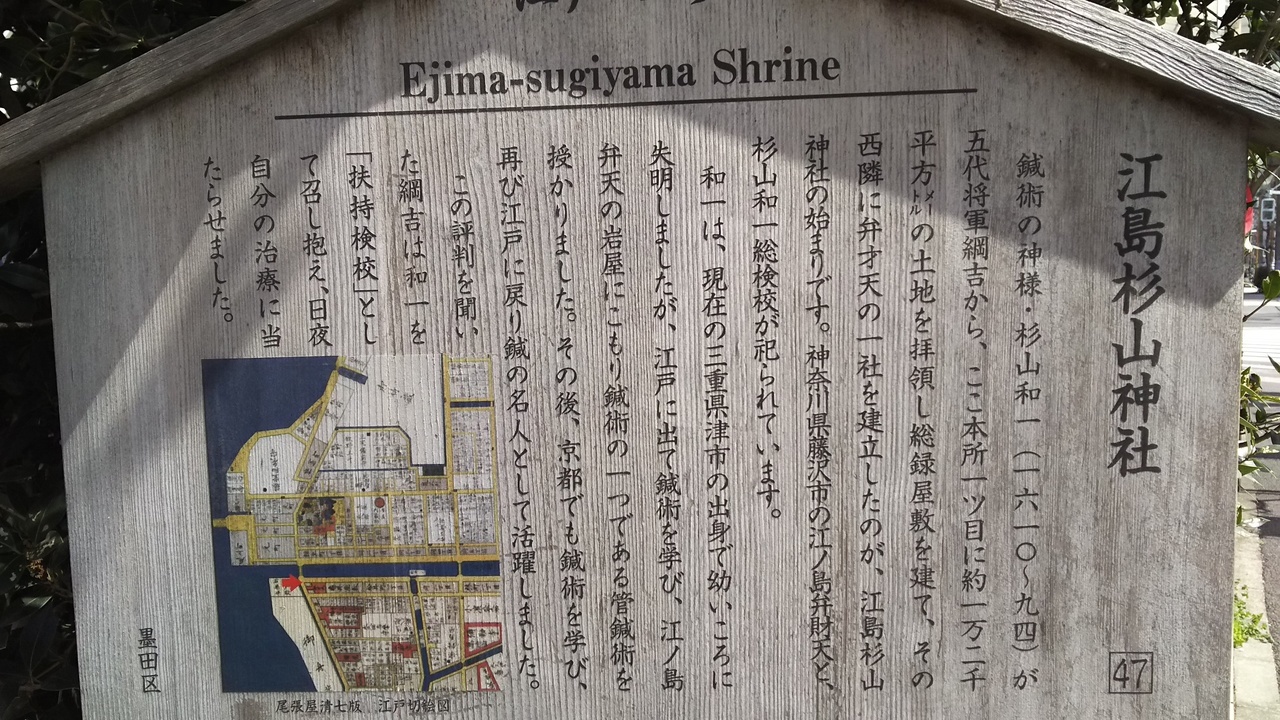 Ejima-sugiyama Shrine
江島杉山神社
鍼術の神様・杉山和一(一六一〇〜九四)が
五代将軍綱吉から、ここ本所一ツ目に約一万二千
平方メートルの土地を拝領し総録屋敷を建て、その
西隣に弁才天の一社を建立したのが、江島杉山
神社の始まりです。神奈川県藤沢市の江ノ島弁財天と、
杉山和一総検校が祀られています。
和一は、現在の三重県津市の出身で幼いころに
失明しましたが、江戸に出て鍼術を学び、江ノ島
弁天の岩屋にこもり鍼術の一つである管鍼術を
授かりました。その後、京都でも鍼術を学び、
再び江戸に戻り鍼の名人として活躍しました。
この評判を聞い
た綱吉は和一を
「扶持検校」とし
て召し抱え、日夜
自分の治療に当
たらせました。
墨田区
尾張屋清七版 江戸切絵図
47